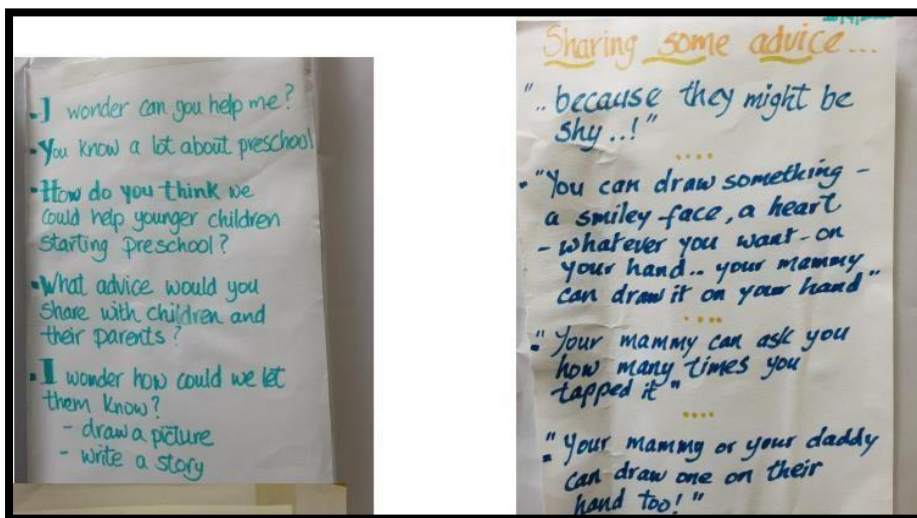 - I wonder can you help me?
- You know a lot about preschool
- How do you think we
could help younger children
starting preschool?
- What advice would you
share with children and
their parents?
- I wonder how could we let
them know?
- draw a picture
- write a story
Sharing some advice...
"..because they might be
shy..!"
....
- "You can draw something -
a smiley face, a heart
- whatever you want - on
your hand.. your mammy
can draw it on your hand"
....
- "Your mammy can ask you
how many times you
tapped it"
....
- "Your mammy or your daddy
can draw one on their
hand too!"